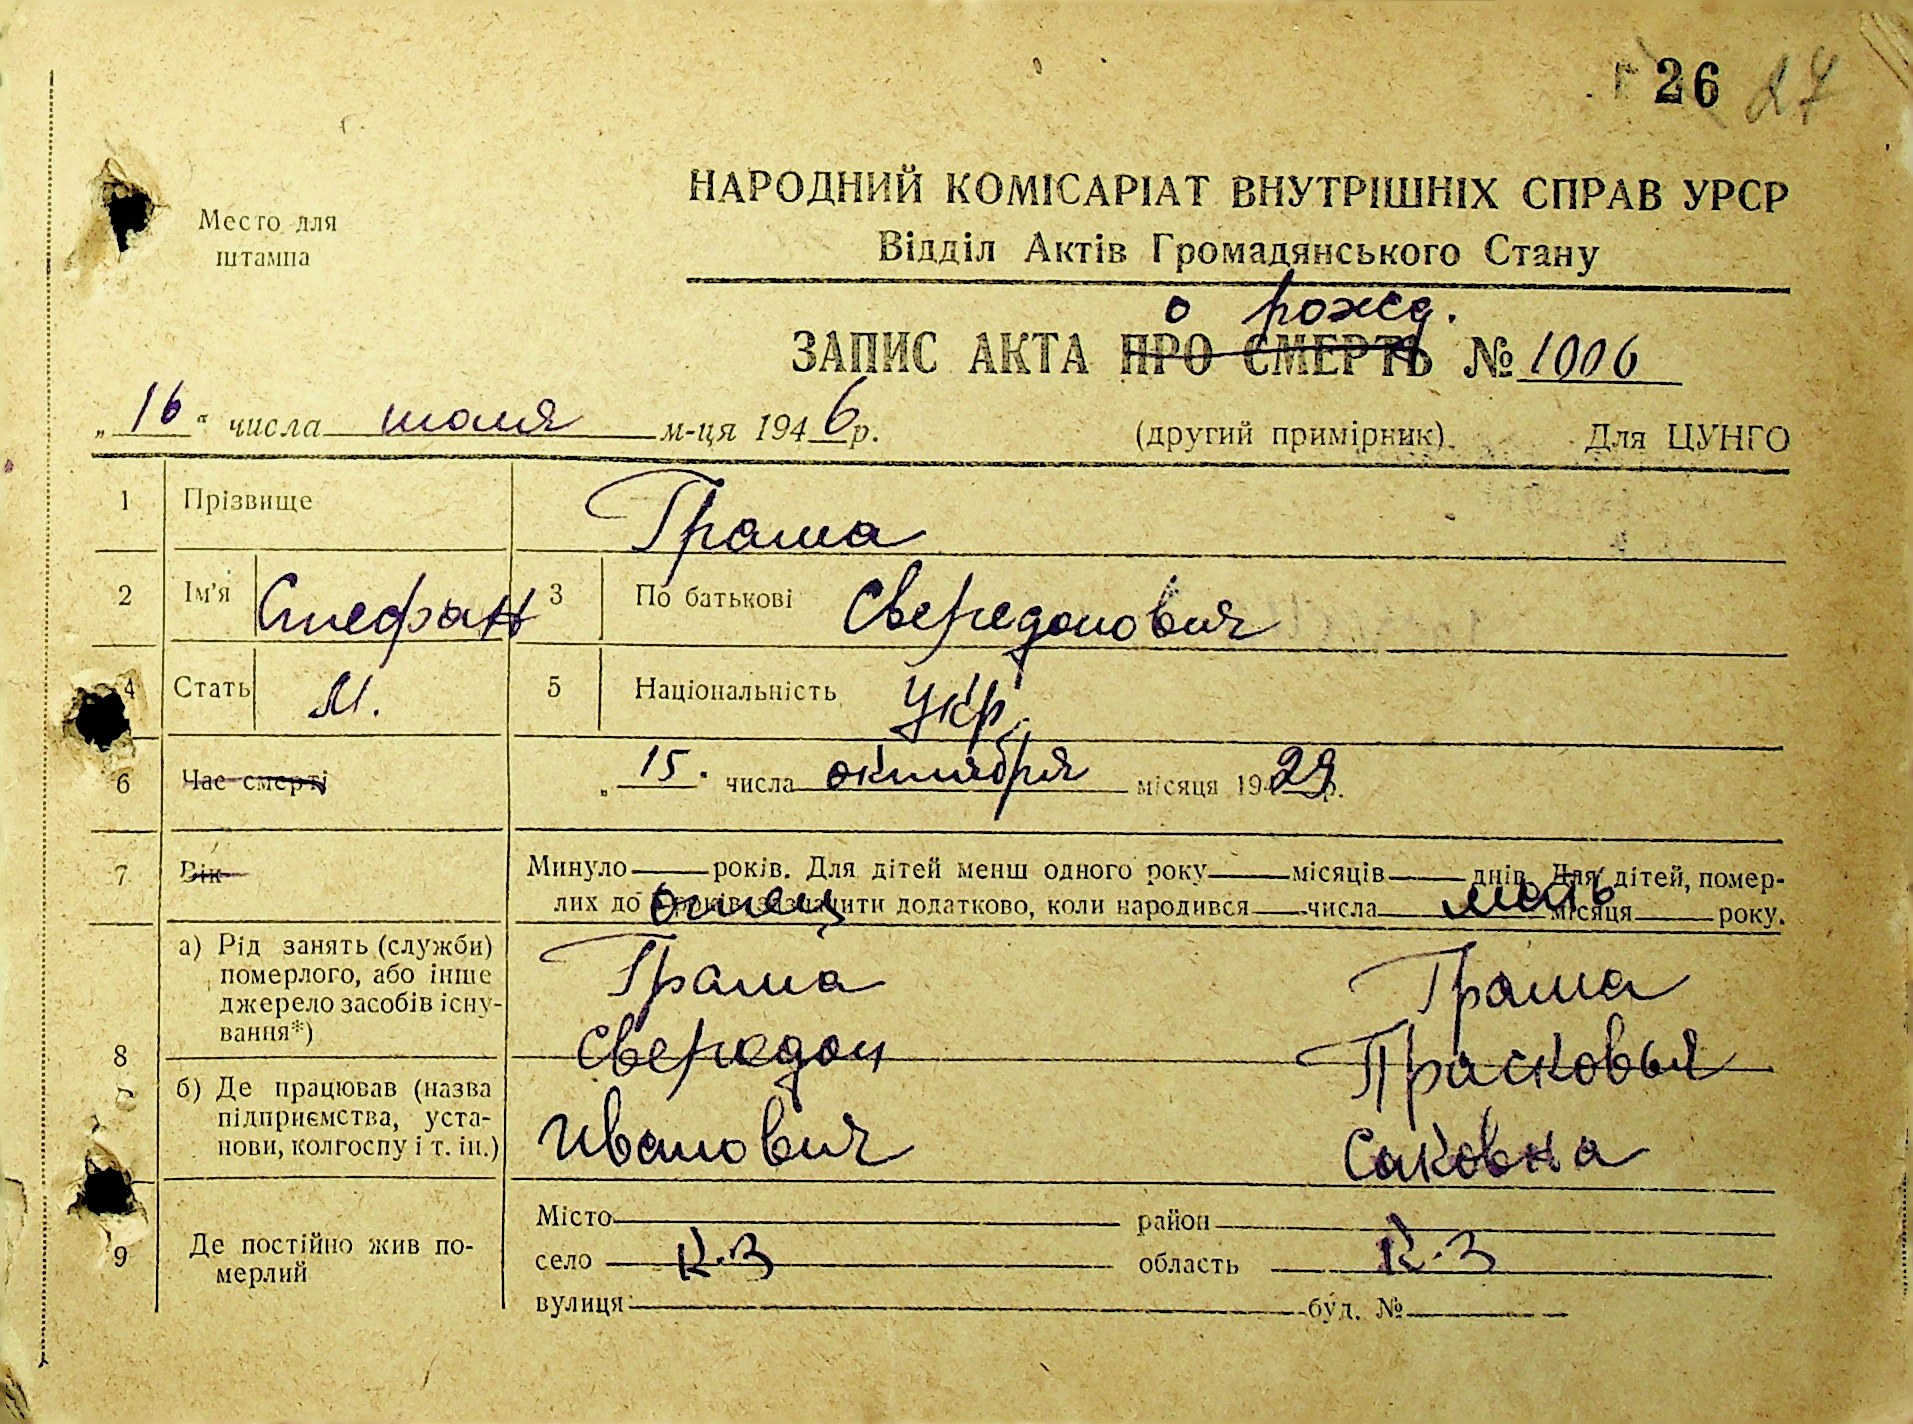 26 27
Место для
штампа
НАРОДНИЙ КОМІСАРІАТ ВНУТРІШНІХ СПРАВ УРСР
Відділ Актів Громадянського Стану
о рожд.
ЗАПИС АКТА ПРО СМЕРТЬ № 1006
„16“ числа июля м-ця 1946 р.
(другий примірник). Для ЦУНГО
1 Прізвище Грама
2 Ім'я Стефан 3 По батькові Свередонович
4 Стать М. 5 Національність Укр.
6 Час смерті „15. числа октября місяця 1929 р.
7 Вік Минуло років. Для дітей менш одного року місяців днів. Для дітей, помер-
лих до років зазначити додатково, коли народився числа місяця року.
Отец мать
8 а) Рід занять (служби)
померлого, або інше
джерело засобів існу-
вання*)
Грама Грама
Свередон Прасковья
б) Де працював (назва
підприємства, уста-
нови, колгоспу і т. ін.)
Иванович Саковна
9 Де постійно жив по-
мерлий
Місто район
село К-З область К-З
вулиця буд. №